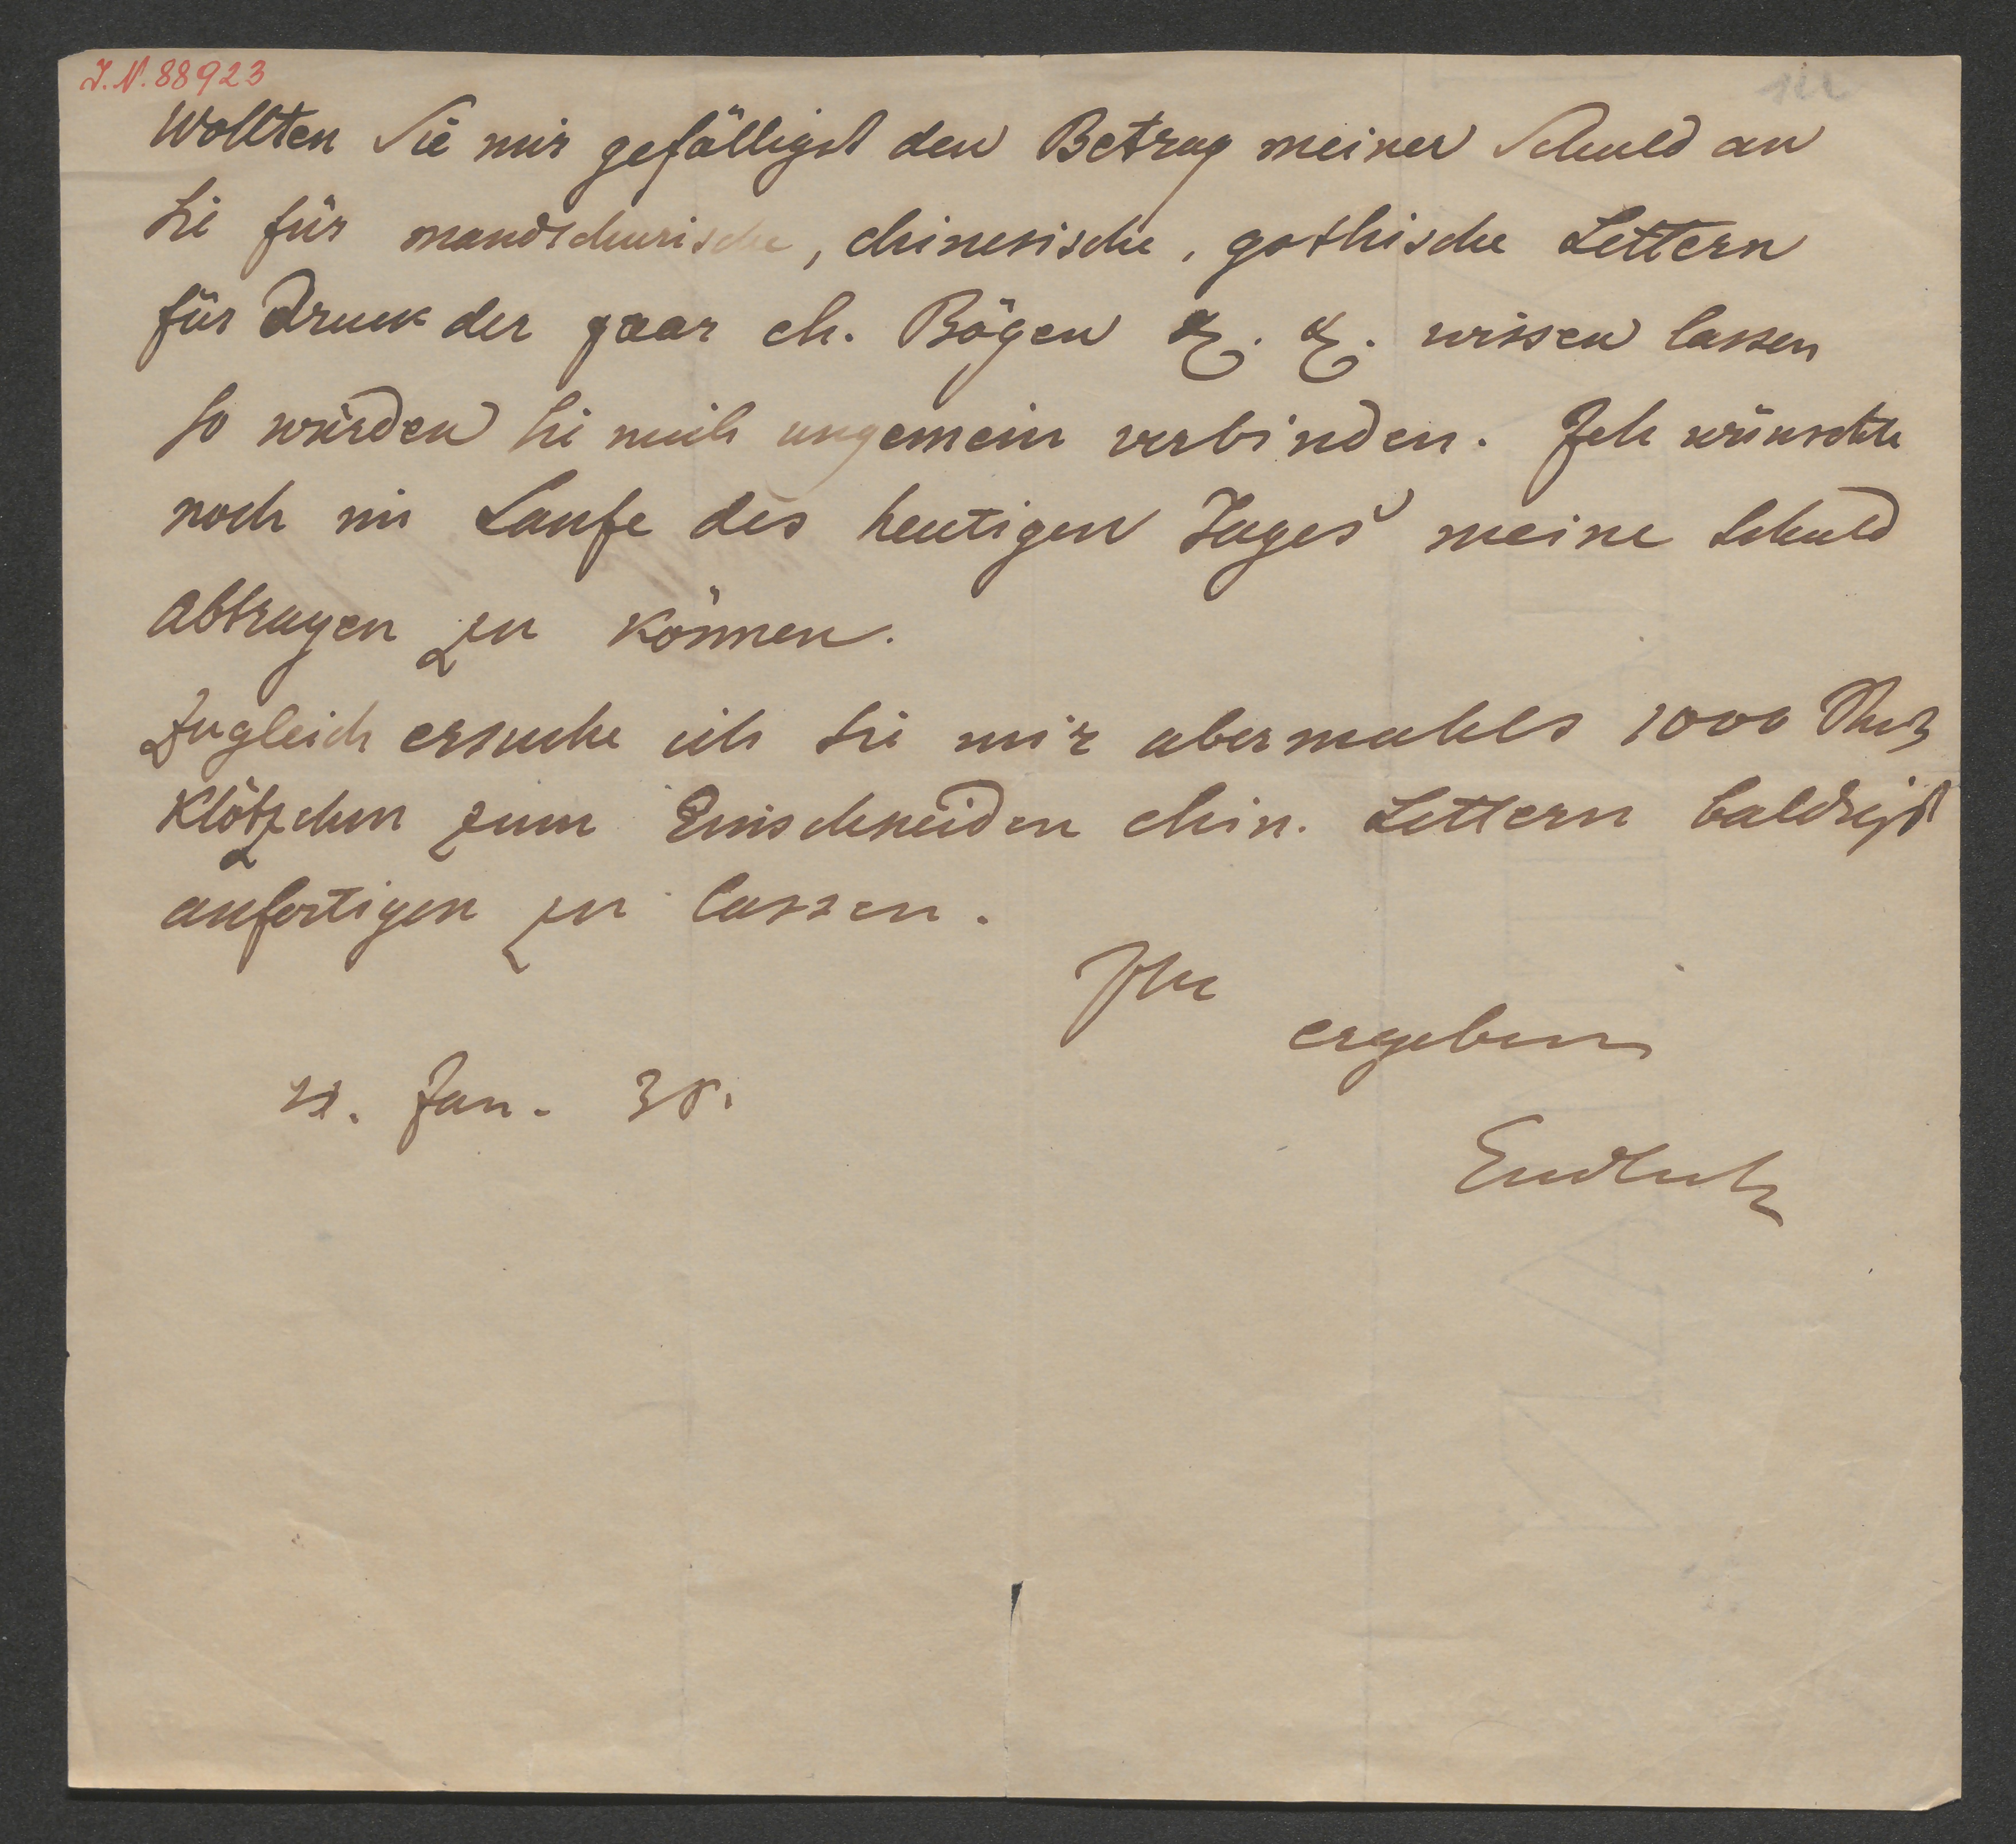 J.N. 88923
Wollten Sie mir gefälligst den Betrag meiner Schuld an
Sie für mandschurische, chinesische, gothische Lettern
für Druck der paar ch. Bögen &. &. wissen lassen
so würden Sie mich ungemein verbinden. Ich wünschte
noch im Laufe des heutigen Tages meine Schuld
abtragen zu können.
Zugleich ersuche ich Sie mir abermahls 1000
Klötzchen zum Einschneiden chin. Lettern baldigst
anfertigen zu lassen.
Ihr
ergebens
Jan.
Endlich